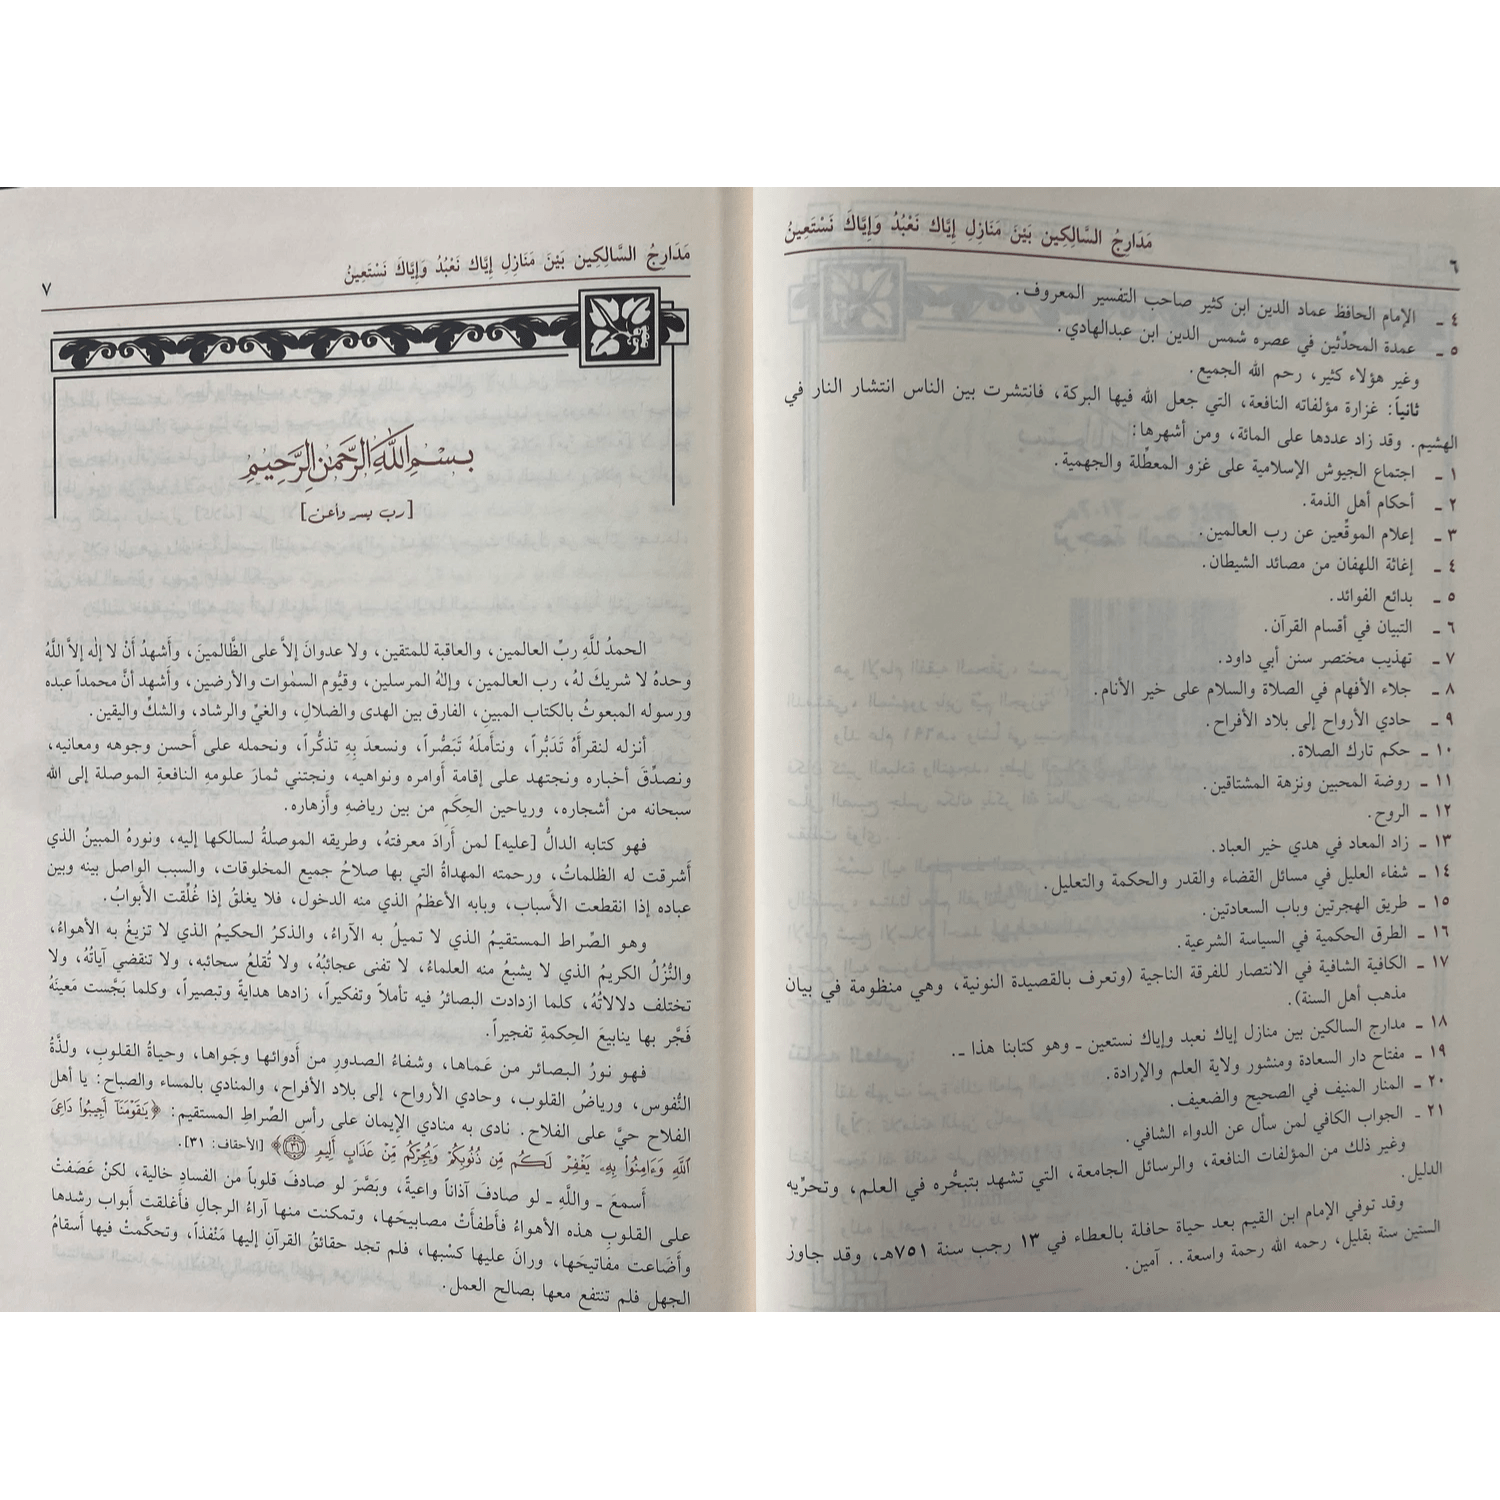 مَدَارِجُ السَّالِكِين بَيْنَ مَنَازِلِ إِيَّاك نَعْبُدُ وَإِيَّاكَ نَسْتَعِينُ
٦
٤ ـ الإمام الحافظ عماد الدين ابن كثير صاحب التفسير المعروف.
٥ ـ عمدة المحدِّثين في عصره شمس الدين ابن عبدالهادي.
وغير هؤلاء كثير، رحم الله الجميع.
ثانياً: غزارة مؤلفاته النافعة، التي جعل الله فيها البركة، فانتشرت بين الناس انتشار النار في
الهشيم. وقد زاد عددها على المائة، ومن أشهرها:
١ ـ اجتماع الجيوش الإسلامية على غزو المعطّلة والجهمية.
٢ ـ أحكام أهل الذمة.
٣ ـ إعلام الموقِّعين عن رب العالمين.
٤ ـ إغاثة اللهفان من مصائد الشيطان.
٥ ـ بدائع الفوائد.
٦ ـ التبيان في أقسام القرآن.
٧ ـ تهذيب مختصر سنن أبي داود.
٨ ـ جلاء الأفهام في الصلاة والسلام على خير الأنام.
٩ ـ حادي الأرواح إلى بلاد الأفراح.
١٠ ـ حكم تارك الصلاة.
١١ ـ روضة المحبين ونزهة المشتاقين.
١٢ ـ الروح.
١٣ ـ زاد المعاد في هدي خير العباد.
١٤ ـ شفاء العليل في مسائل القضاء والقدر والحكمة والتعليل.
١٥ ـ طريق الهجرتين وباب السعادتين.
١٦ ـ الطرق الحكمية في السياسة الشرعية.
١٧ ـ الكافية الشافية في الانتصار للفرقة الناجية (وتعرف بالقصيدة النونية، وهي منظومة في بيان
مذهب أهل السنة).
١٨ ـ مدارج السالكين بين منازل إياك نعبد وإياك نستعين ـ وهو كتابنا هذا ـ.
١٩ ـ مفتاح دار السعادة ومنشور ولاية العلم والإرادة.
٢٠ ـ المنار المنيف في الصحيح والضعيف.
٢١ ـ الجواب الكافي لمن سأل عن الدواء الشافي.
وغير ذلك من المؤلفات النافعة، والرسائل الجامعة، التي تشهد بتبحُّره في العلم، وتحرِّيه
الدليل.
وقد توفي الإمام ابن القيم بعد حياة حافلة بالعطاء في ١٣ رجب سنة ٧٥١هـ، وقد جاوز
الستين سنة بقليل، رحمه الله رحمة واسعة.. آمين.
مَدَارِجُ السَّالِكِين بَيْنَ مَنَازِلِ إِيَّاك نَعْبُدُ وَإِيَّاكَ نَسْتَعِينُ
٧
بِسْمِ اللَّهِ الرَّحْمَٰنِ الرَّحِيمِ
[رب يسر وأعن]
الحمدُ للَّهِ ربِّ العالمين، والعاقبة للمتقين، ولا عدوانَ إلاَّ على الظَّالمينَ، وأَشهدُ أنْ لا إلٰه إلاَّ اللَّهُ
وحدهُ لا شريكَ لهُ، رب العالمين، وإلهُ المرسلين، وقيُّوم السمٰوات والأرضين، وأَشهد أنَّ محمداً عبده
ورسوله المبعوثُ بالكتاب المبينِ، الفارق بين الهدى والضلالِ، والغيِّ والرشاد، والشكِّ واليقين.
أنزله لنقرأهُ تَدَبُّراً، ونتأملَهُ تَبَصُّراً، ونسعدَ بِهِ تذكُّراً، ونحمله على أَحسن وجوهه ومعانيه،
ونصدِّقَ أخباره ونجتهد على إقامة أَوامره ونواهيه، ونجتني ثمارَ علومهِ النافعةِ الموصلة إلى الله
سبحانه من أشجاره، ورياحين الحِكَمِ من بين رياضهِ وأَزهاره.
فهو كتابه الدالُّ [عليه] لمن أرادَ معرفتهُ، وطريقه الموصلةُ لسالكها إليه، ونورهُ المبينُ الذي
أَشرقت له الظلماتُ، ورحمته المهداةُ التي بها صلاحُ جميع المخلوقات، والسبب الواصل بينه وبين
عباده إذا انقطعت الأسباب، وبابه الأعظمُ الذي منه الدخول، فلا يغلقُ إذا غُلِّقت الأَبوابُ.
وهو الصِّراط المستقيمُ الذي لا تميلُ به الآراءُ، والذكرُ الحكيمُ الذي لا تزيغُ به الأهواءُ،
والنُّزُلُ الكريمُ الذي لا يشبعُ منه العلماءُ، لا تفنى عجائبُهُ، ولا تُقلعُ سحائبه، ولا تنقضي آياتُهُ، ولا
تختلف دلالاتُهُ، كلما ازدادت البصائرُ فيه تأملاً وتفكيراً، زادها هدايةً وتبصيراً، وكلما بَجَّست مَعينَهُ
فَجَّر بها ينابيعَ الحِكمةِ تفجيراً.
فهو نورُ البصائر من عَماها، وشفاءُ الصدورِ من أدوائها وجَواها، وحياةُ القلوبِ، ولذَّةُ
النُّفوس، ورياضُ القلوب، وحادي الأرواح، إلى بلاد الأفراح، والمنادي بالمساء والصباح: يا أهل
الفلاح حيَّ على الفلاح. نادى به منادي الإيمان على رأسِ الصِّراطِ المستقيم: ﴿يَٰقَوْمَنَآ أَجِيبُوا۟ دَاعِيَ
ٱللَّهِ وَءَامِنُوا۟ بِهِۦ يَغْفِرْ لَكُم مِّن ذُنُوبِكُمْ وَيُجِرْكُم مِّنْ عَذَابٍ أَلِيمٍ ٣١﴾ [الأحقاف: ٣١].
أسمعَ ـ واللَّهِ ـ لو صادفَ آذاناً واعيةً، وبَصَّرَ لو صادفَ قلوباً من الفسادِ خالية، لكنْ عَصَفتْ
على القلوبِ هذه الأهواءُ فأطفأَتْ مصابيحَها، وتمكنت منها آراءُ الرجالِ فأَغلقت أَبواب رشدها
وأضَاعت مفاتيحَها، ورانَ عليها كسْبها، فلم تجد حقائقُ القرآنِ إليها مَنْفَذاً، وتحكَّمتْ فيها أسقامُ
الجهل فلم تنتفع معها بصالح العمل.